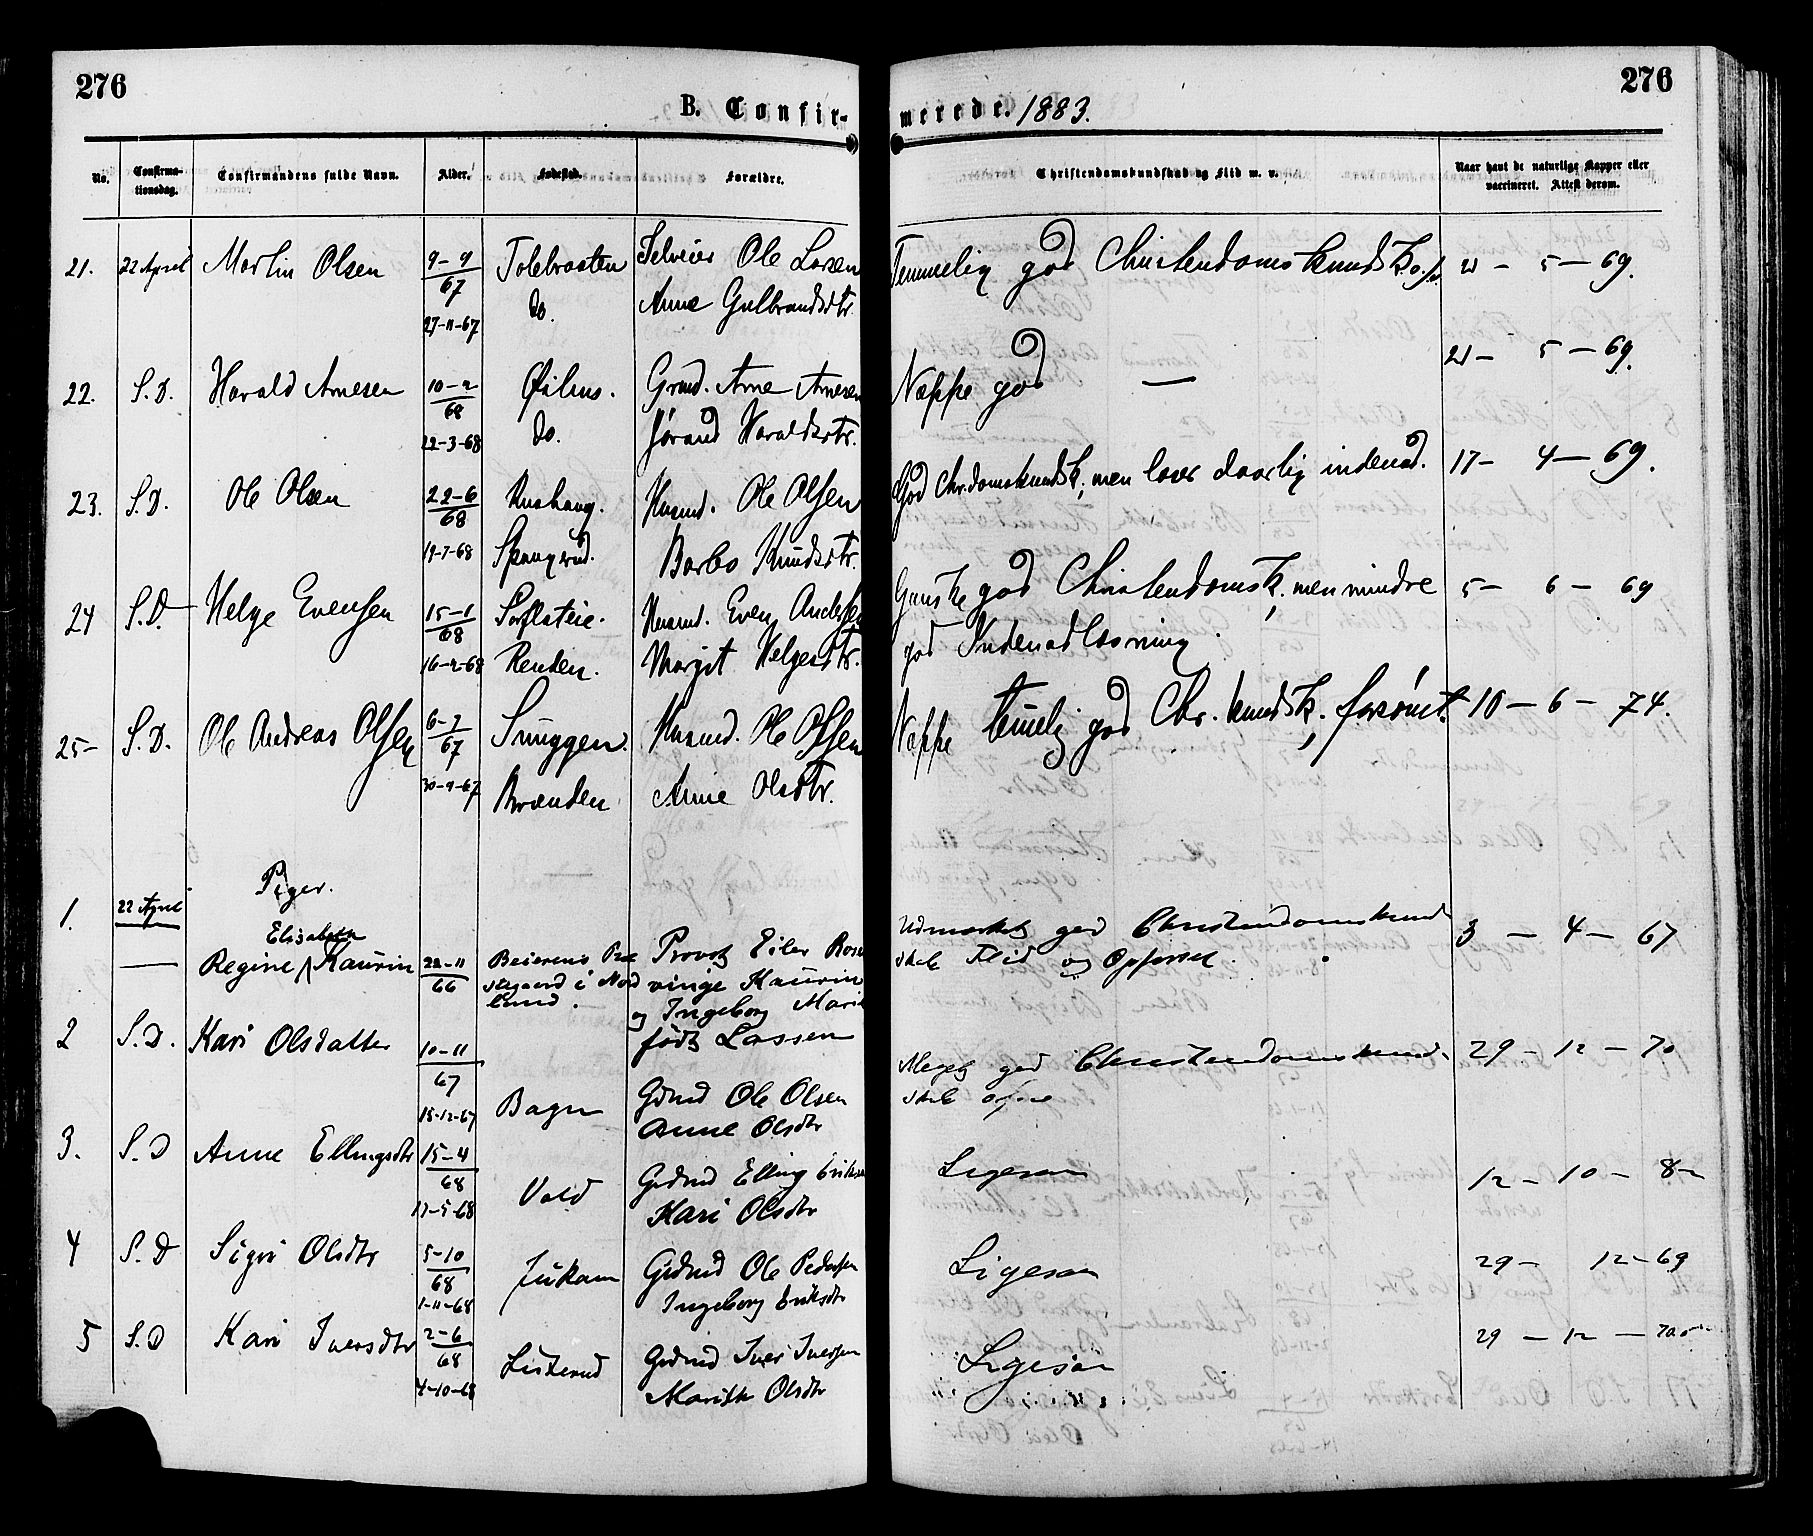 276
276
B. Confir-
merede. 1883.
No.
Confirma-
tionsdag.
Confirmandens fulde Navn.
Alder.
Fødested.
Forældre.
Christendomskundskab og Flid m. v.
Naar havt de naturlige Kopper eller
vaccineret. Attest derom.
21. 22 April Martin Olsen 9-9 Selveier Ole Larsen Temmelig god Christendomskundsk. 21 - 5 - 69.
67 do. Anne Gulbrandsdtr.
27-11-67
22. S.D. Harald Arnesen 10-2 Grmd. Arne Arnesen Neppe god — 21 - 5 - 69.
68
22-3-68 do. Jørand Haraldsdtr.
23. S.D. Ole Olsen 22-6 Husmd. Ole Olsen God Chr.domskundsk., men læser daarlig indenad. 17 - 4 - 69.
68
19-7-68 Barbo Knudsdtr.
24 S.D. Helge Evensen 15-1 Husmd. Even Andersen Ganske god Christendomsk., men mindre 5 - 6 - 69
68
16-2-68 Renden. Margit Helgesdtr. god Indenadlæsning.
25- S.D. Ole Andreas Olsen 6-7 Snuggen. Husmd. Ole Olsen Neppe temelig god Chr. kundsk., forsømt. 10 - 6 - 74.
67
30-9-67 Brænden Anne Olsdtr.
Piger.
1. 22 April Elisabeth
— Regine Kaurin 22-11 Beierens Præ Provst Eiler Rosen Udmærket god Christendomskund 3 - 4 - 67
66 stegaard i Nord vinge Kaurin skab Flid og Opførsel.
land. og Ingeborg Marie
født Lassen
2 S.D. Kari Olsdatter 10-11 Meget god Christendomskund- 29 - 12 - 70
67 Gdmd Ole Olsen skab
15-12-67 Bagn Anne Olsdtr
3. S.D Anne Ellingsdtr 15-4 Gdmd Elling Eriksen Ligesaa 12 - 10 - 82
68 Vold
17-5-68 Kari Olsdtr
4 S.D Sigri Olsdtr 5-10 Gdmd Ole Pedersen Ligesaa 29 - 12-69
68
1-11-68 Ingeborg Eriksdtr
5 S.D Kari Iversdtr 2-6 Gdmd Iver Iversen Ligesaa 29 - 12 - 70
68 Listerud
4-10-68 Marith Olsdtr